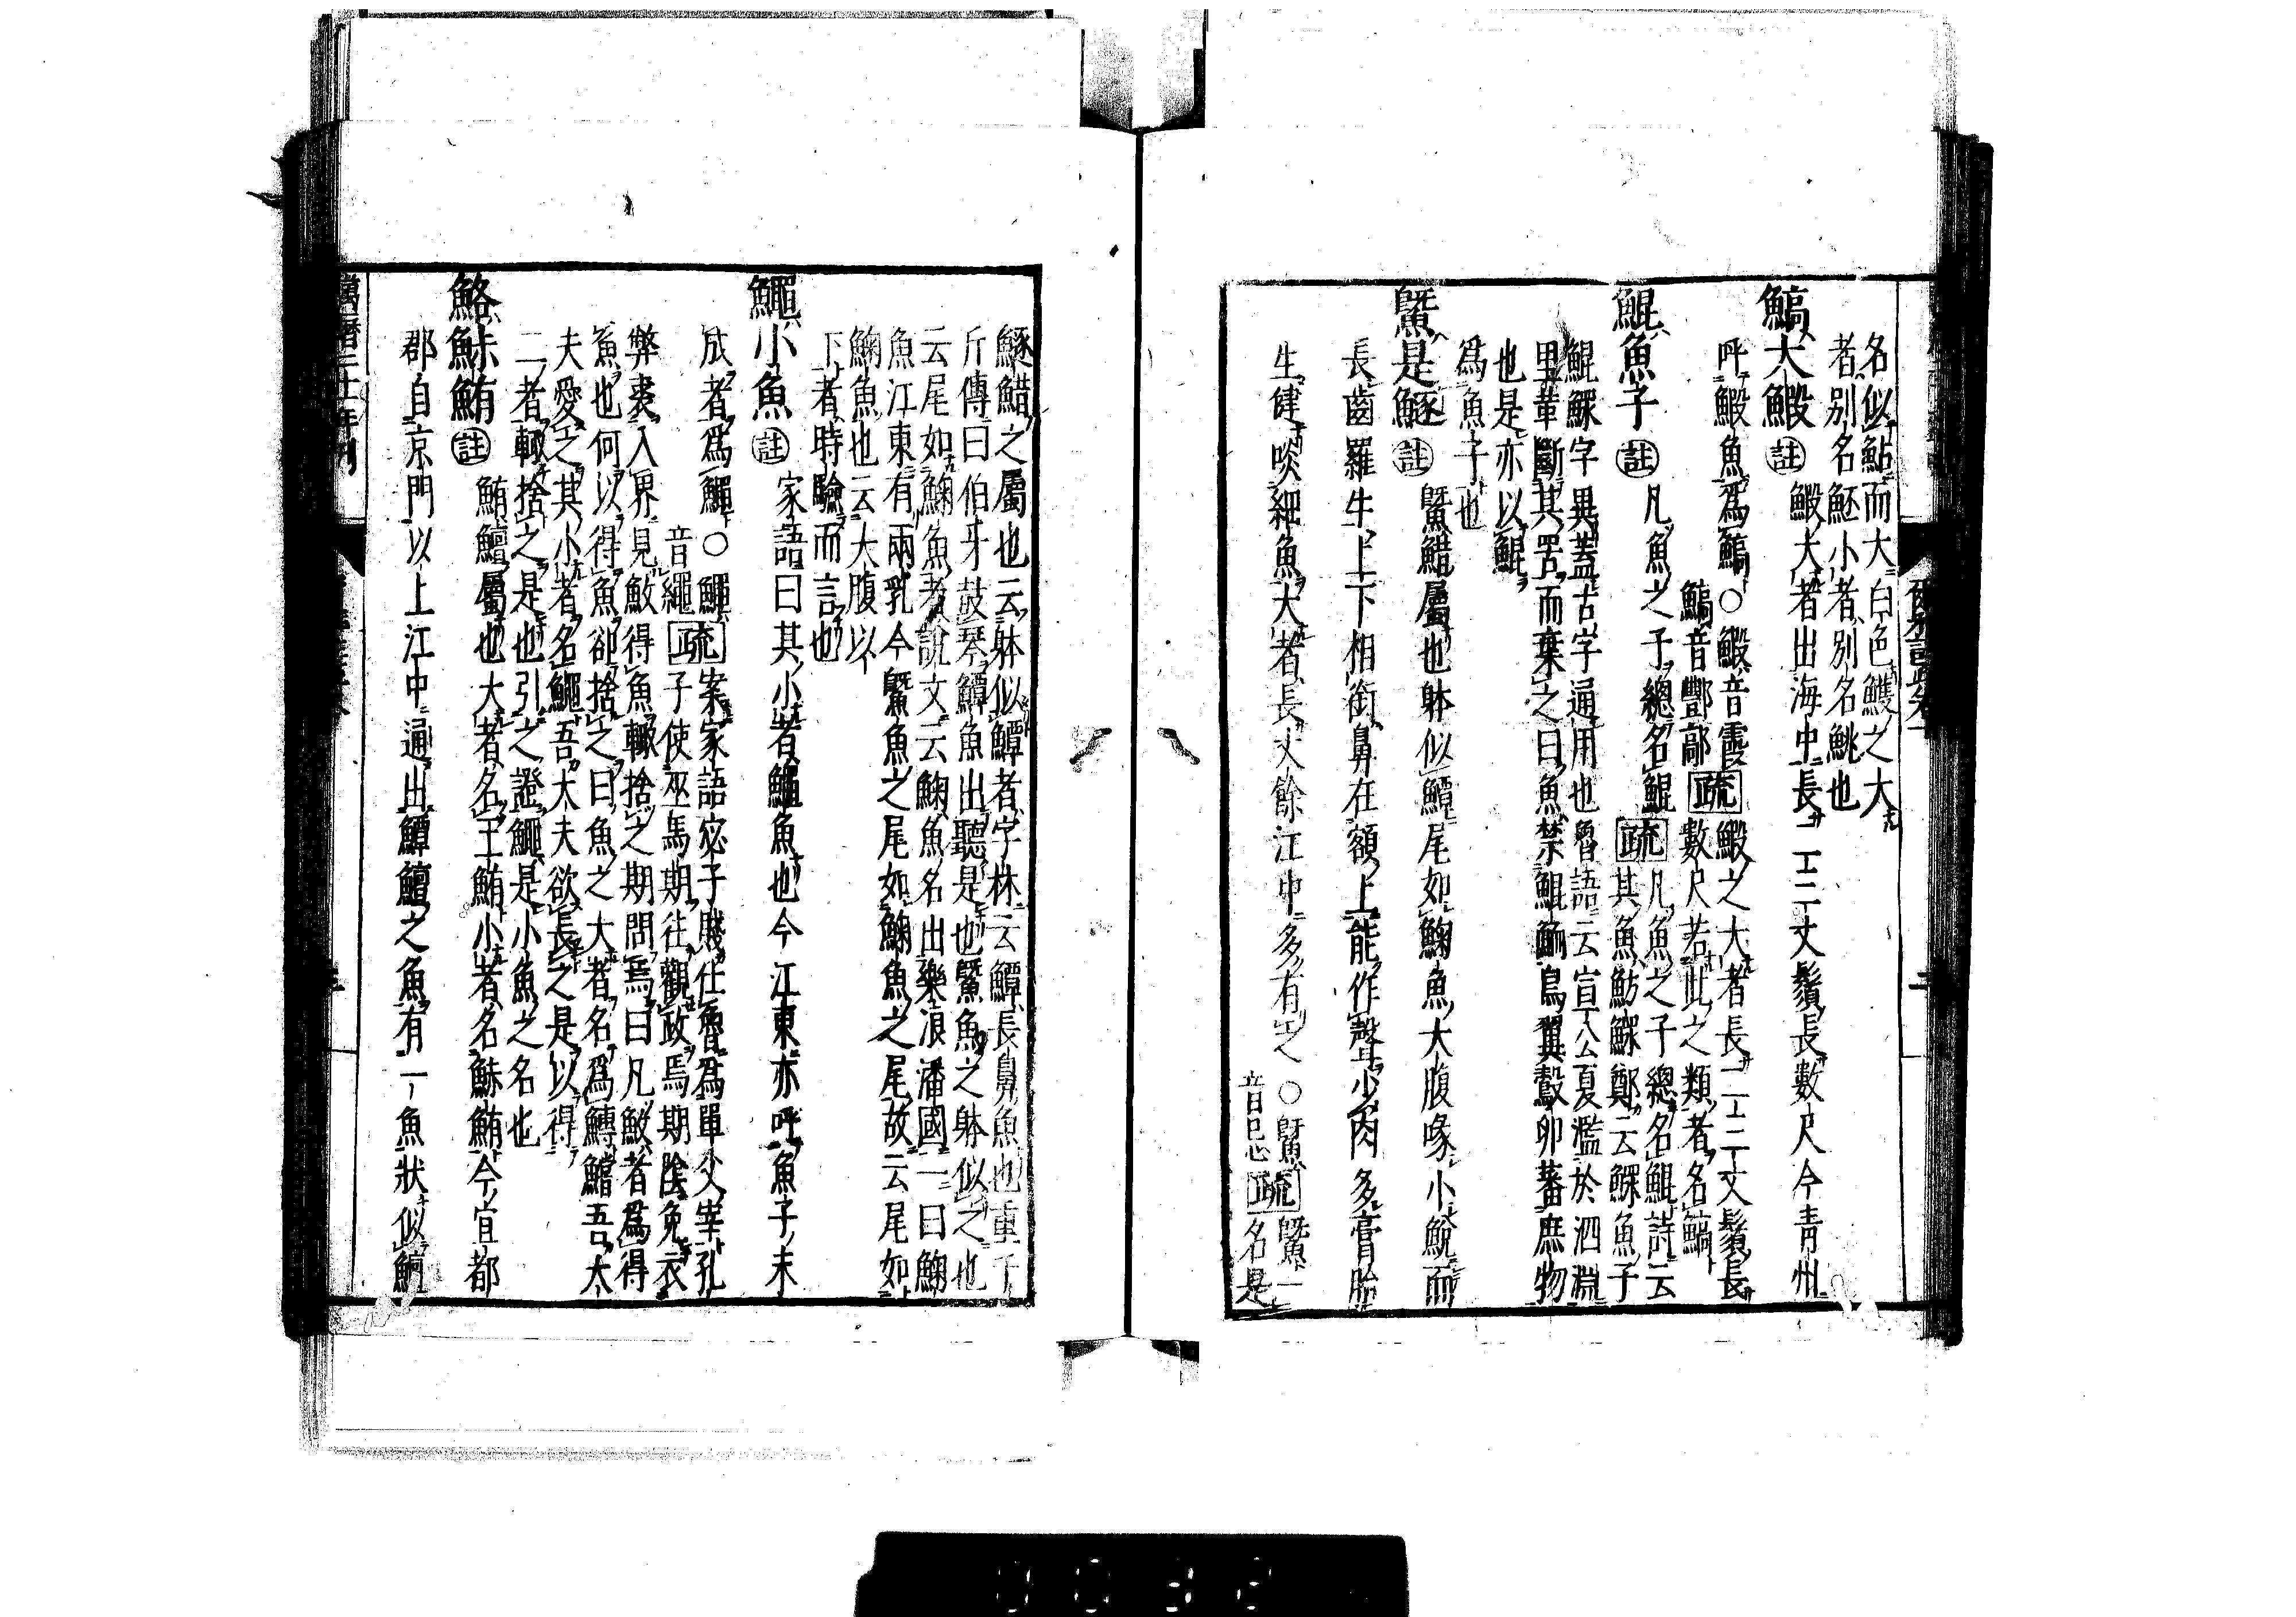 名似鮎而大白色鱯之大
者別名魾小者別名鮡也
鰝大鰕㊟鰕大者出海中長二三丈鬚長數尺今青州
呼鰕魚為鰝○鰕音霞鰝音酆鄗疏鰕之大者長二三丈鬚長數尺若此之類者名鰝
鯤魚子㊟凡魚之子總名鯤疏凡魚之子總名鯤詩云其魚魴鰥鄭云鰥魚子
鯤鰥字異蓋古字通用也魯語云宣公夏濫於泗淵
里革斷其罟而棄之曰魚禁鯤鮞鳥翼鷇卵蕃庶物
也是亦以鯤
為魚子也
鱀是鱁㊟鱀䱜屬也躰似鱏尾如䱡魚大腹喙小銳而
長齒羅生上下相銜鼻在額上能作聲少肉多膏胎
生健啖細魚大者長丈餘江中多有之○鱀音忌疏鱀一名是
鱁䱜之屬也云躰似鱏者字林云鱏長鼻魚也重千
斤傳曰伯牙鼓琴鱏魚出聽是也鱀魚之躰似之也
云尾如䱡魚者說文云䱡魚名出樂浪潘國一曰䱡
魚江東有兩乳今鱀魚之尾如䱡魚之尾故云尾如
䱡魚也云大腹以
下者時驗而言也
鱦小魚㊟家語曰其小者鱦魚也今江東亦呼魚子未
成者為鱦○鱦音繩疏案家語宓子賤仕魯為單父宰孔子使巫馬期往觀政焉期陰免衣
弊裘入界見㪅得魚輙捨之期問焉曰凡㪅者為得
魚也何以得魚卻捨之曰魚之大者名為鱄鱛吾大
夫愛之其小者名鱦吾大夫欲長之是以得
二者輙捨之是也引之證鱦是小魚之名也
鮥鮛鮪㊟鮪鱣屬也大者名王鮪小者名鮛鮪今宜都
郡自京門以上江中通出鱏鱣之魚有一魚狀似鱣